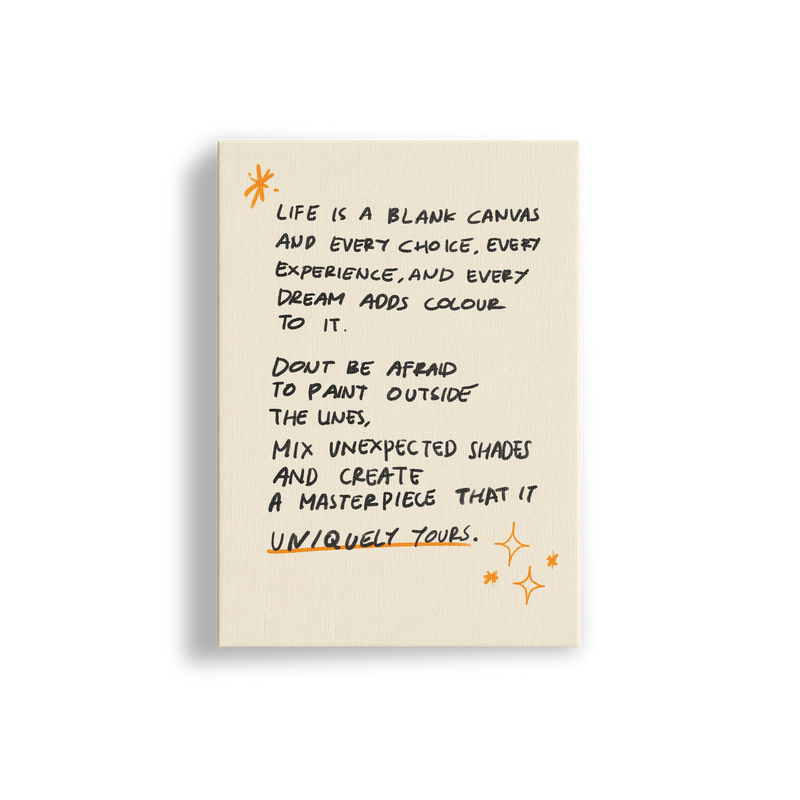 LIFE IS A BLANK CANVAS
AND EVERY CHOICE, EVERY
EXPERIENCE, AND EVERY
DREAM ADDS COLOUR
TO IT.
DONT BE AFRAID
TO PAINT OUTSIDE
THE LINES,
MIX UNEXPECTED SHADES
AND CREATE
A MASTERPIECE THAT IT
UNIQUELY YOURS.